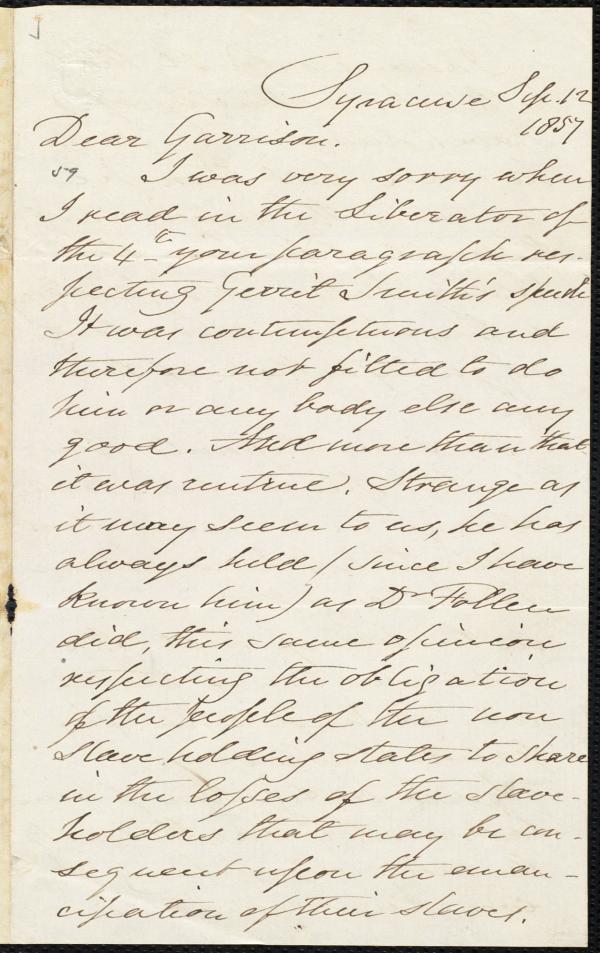 Syracuse Sep. 12
1857
Dear Garrison.
59
I was very sorry when
I read in the Liberator of
the 4th your paragraph res-
pecting Gerrit Smith's speech
It was contemptuous and
therefore not fitted to do
him or any body else any
good. And more than that
it was untrue. Strange as
it may seem to us, he has
always held (since I have
known him) as Dr Follen
did, this same opinion
respecting the obligation
of the people of the non
slave holding states to share
in the losses of the slave-
holders that may be con-
sequent upon the eman-
cipation of their slaves.